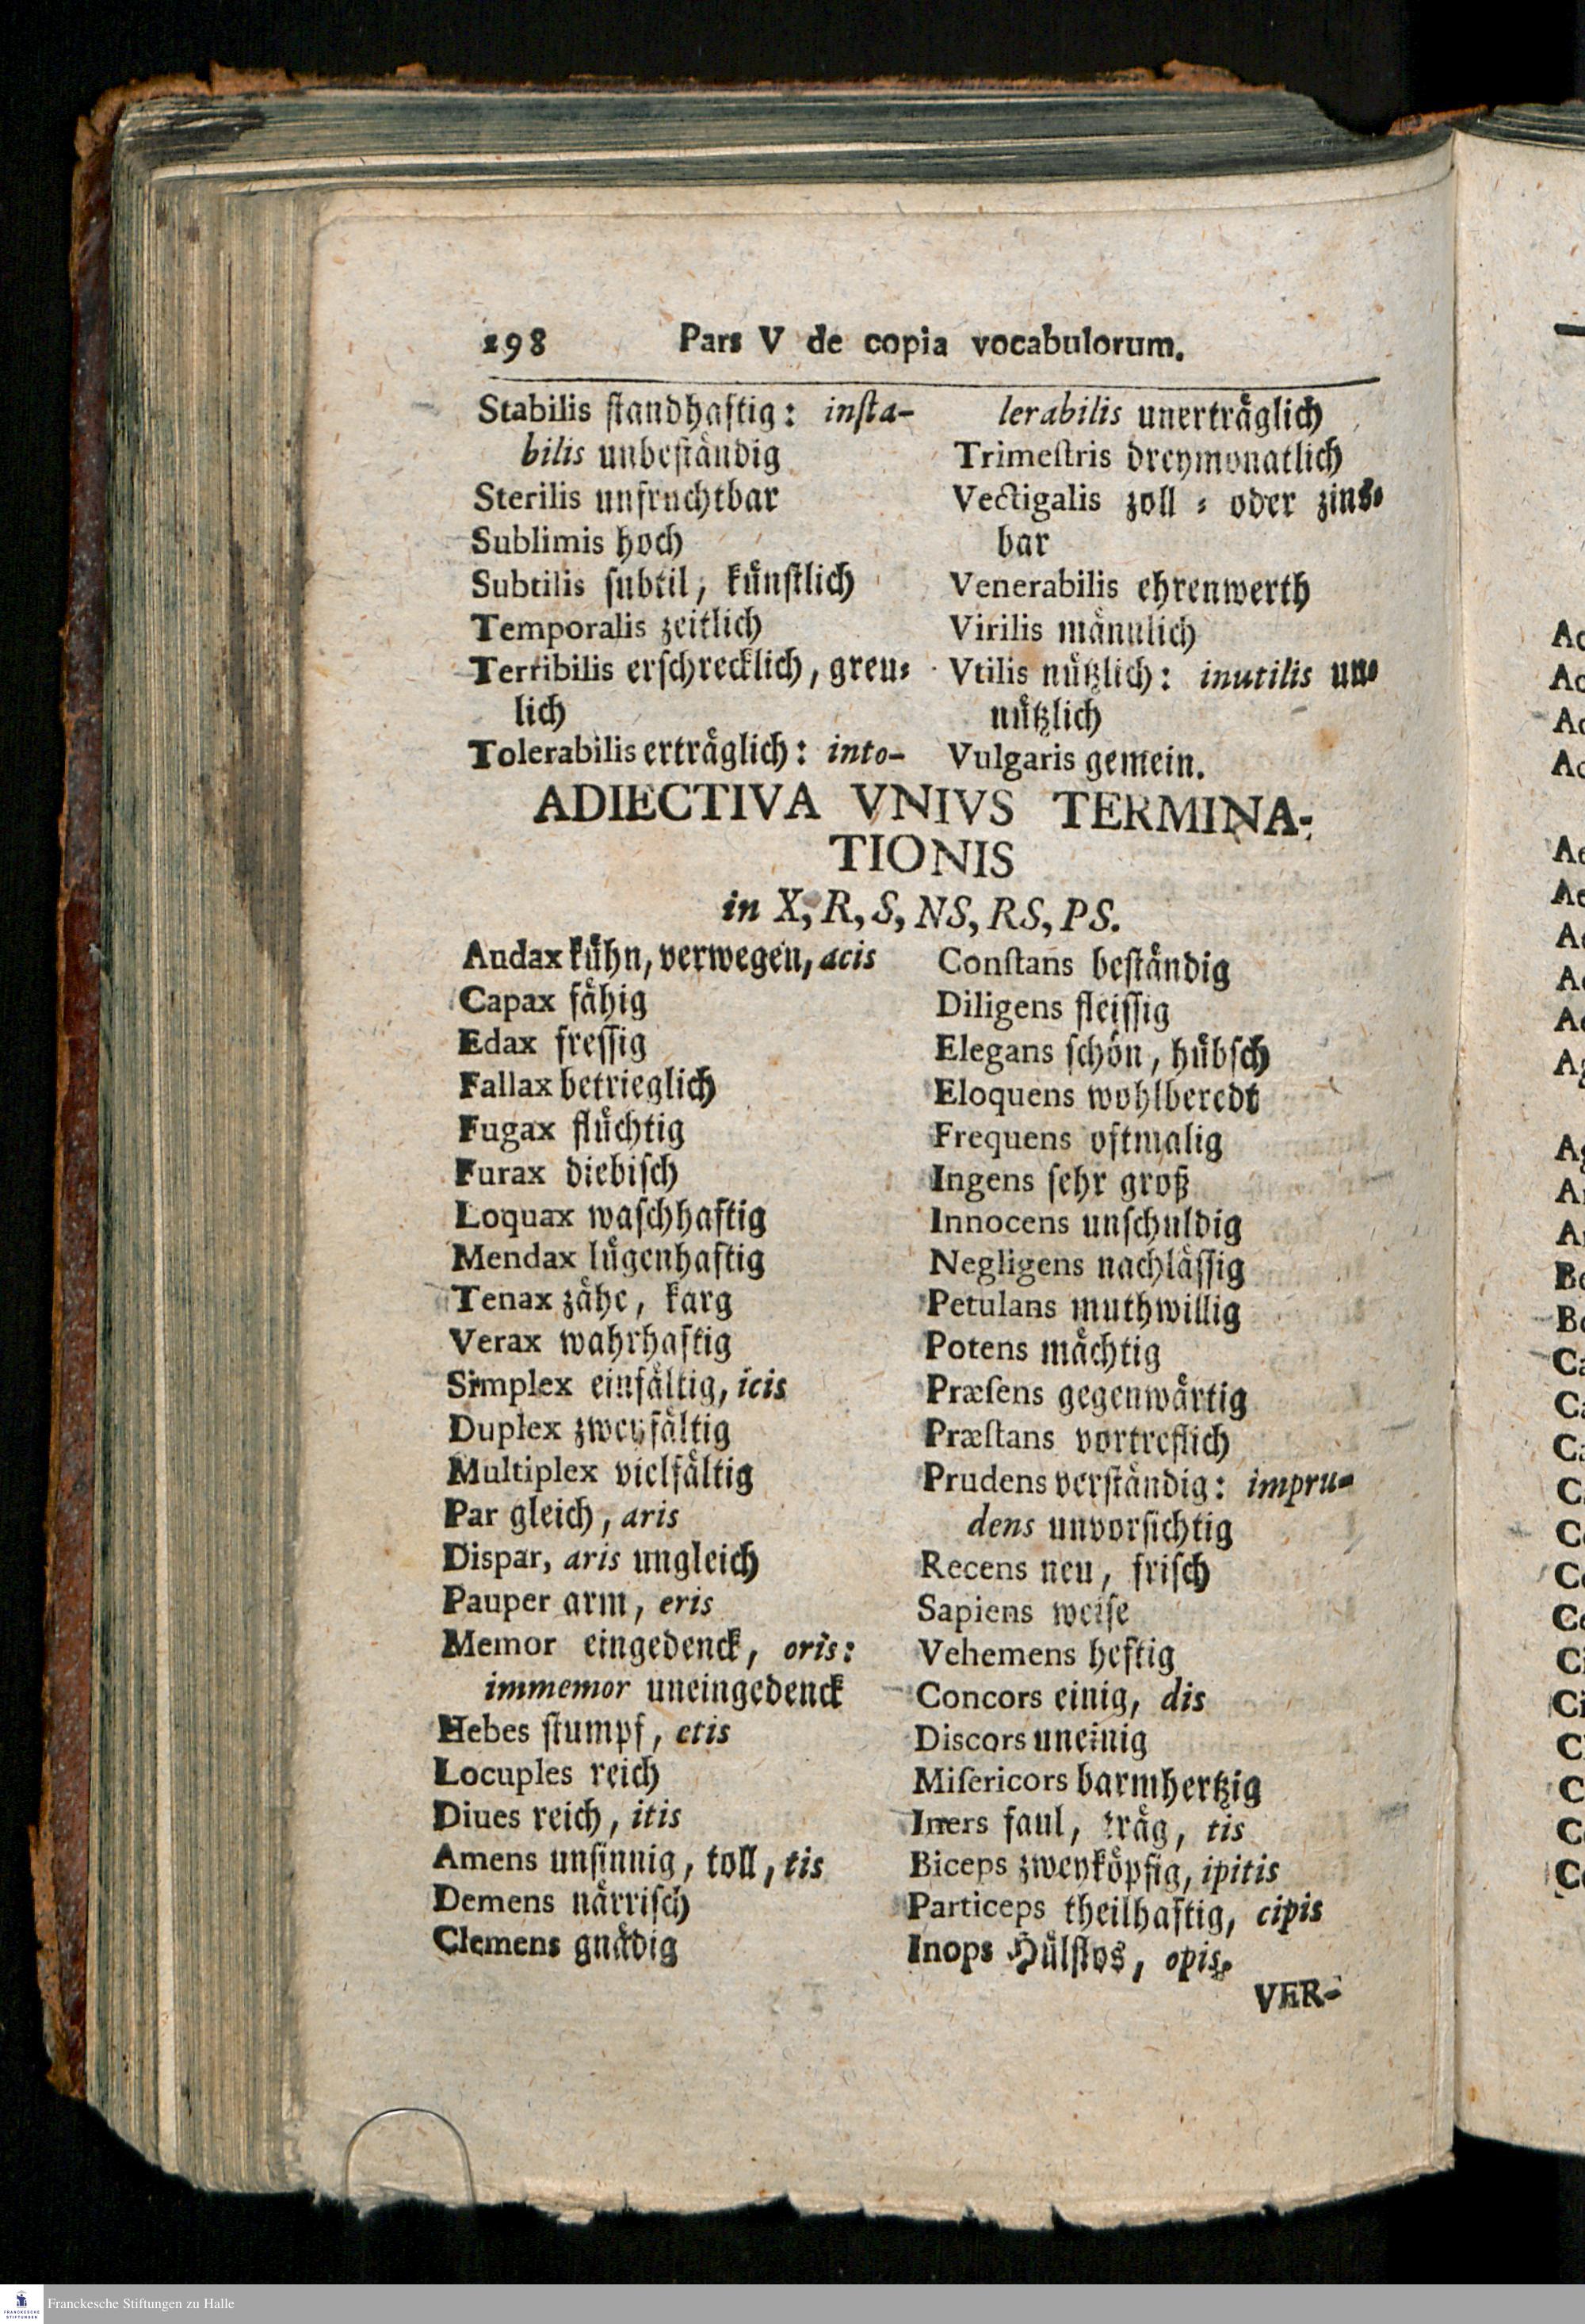 198 Pars V de copia vocabulorum.
Stabilis ſtandhaftig: inſta-
bilis unbeſtaͤndig
Sterilis unfruchtbar
Sublimis hoch
Subtilis ſubtil, kuͤnſtlich
Temporalis zeitlich
Terribilis erſchrecklich, greu-
lich
Tolerabilis ertraͤglich: into-
lerabilis unertraͤglich
Trimeſtris dreymonatlich
Vectigalis zoll - oder zins-
bar
Venerabilis ehrenwerth
Virilis maͤnnlich
Vtilis nuͤtzlich: inutilis un-
nuͤtzlich
Vulgaris gemein.
ADIECTIVA VNIVS TERMINA-
TIONIS
in X, R, S, NS, RS, PS.
Audax kuͤhn, verwegen, acis
Capax faͤhig
Edax freſſig
Fallax betrieglich
Fugax fluͤchtig
Furax diebiſch
Loquax waſchhaftig
Mendax luͤgenhaftig
Tenax zaͤhe, karg
Verax wahrhaftig
Simplex einfaͤltig, icis
Duplex zweyfaͤltig
Multiplex vielfaͤltig
Par gleich, aris
Dispar, aris ungleich
Pauper arm, eris
Memor eingedenck, oris:
immemor uneingedenck
Hebes ſtumpf, etis
Locuples reich
Diues reich, itis
Amens unſinnig, toll, tis
Demens naͤrriſch
Clemens gnaͤdig
Conſtans beſtaͤndig
Diligens fleiſſig
Elegans ſchoͤn, huͤbſch
Eloquens wohlberedt
Frequens oftmalig
Ingens ſehr groß
Innocens unſchuldig
Negligens nachlaͤſſig
Petulans muthwillig
Potens maͤchtig
Præſens gegenwaͤrtig
Præſtans vortreflich
Prudens verſtaͤndig: impru-
dens unvorſichtig
Recens neu, friſch
Sapiens weiſe
Vehemens heftig
Concors einig, dis
Discors uneinig
Miſericors barmhertzig
Iners faul, traͤg, tis
Biceps zweykoͤpfig, ipitis
Particeps theilhaftig, cipis
Inops Huͤlflos, opis.
VER-
Franckesche Stiftungen zu Halle